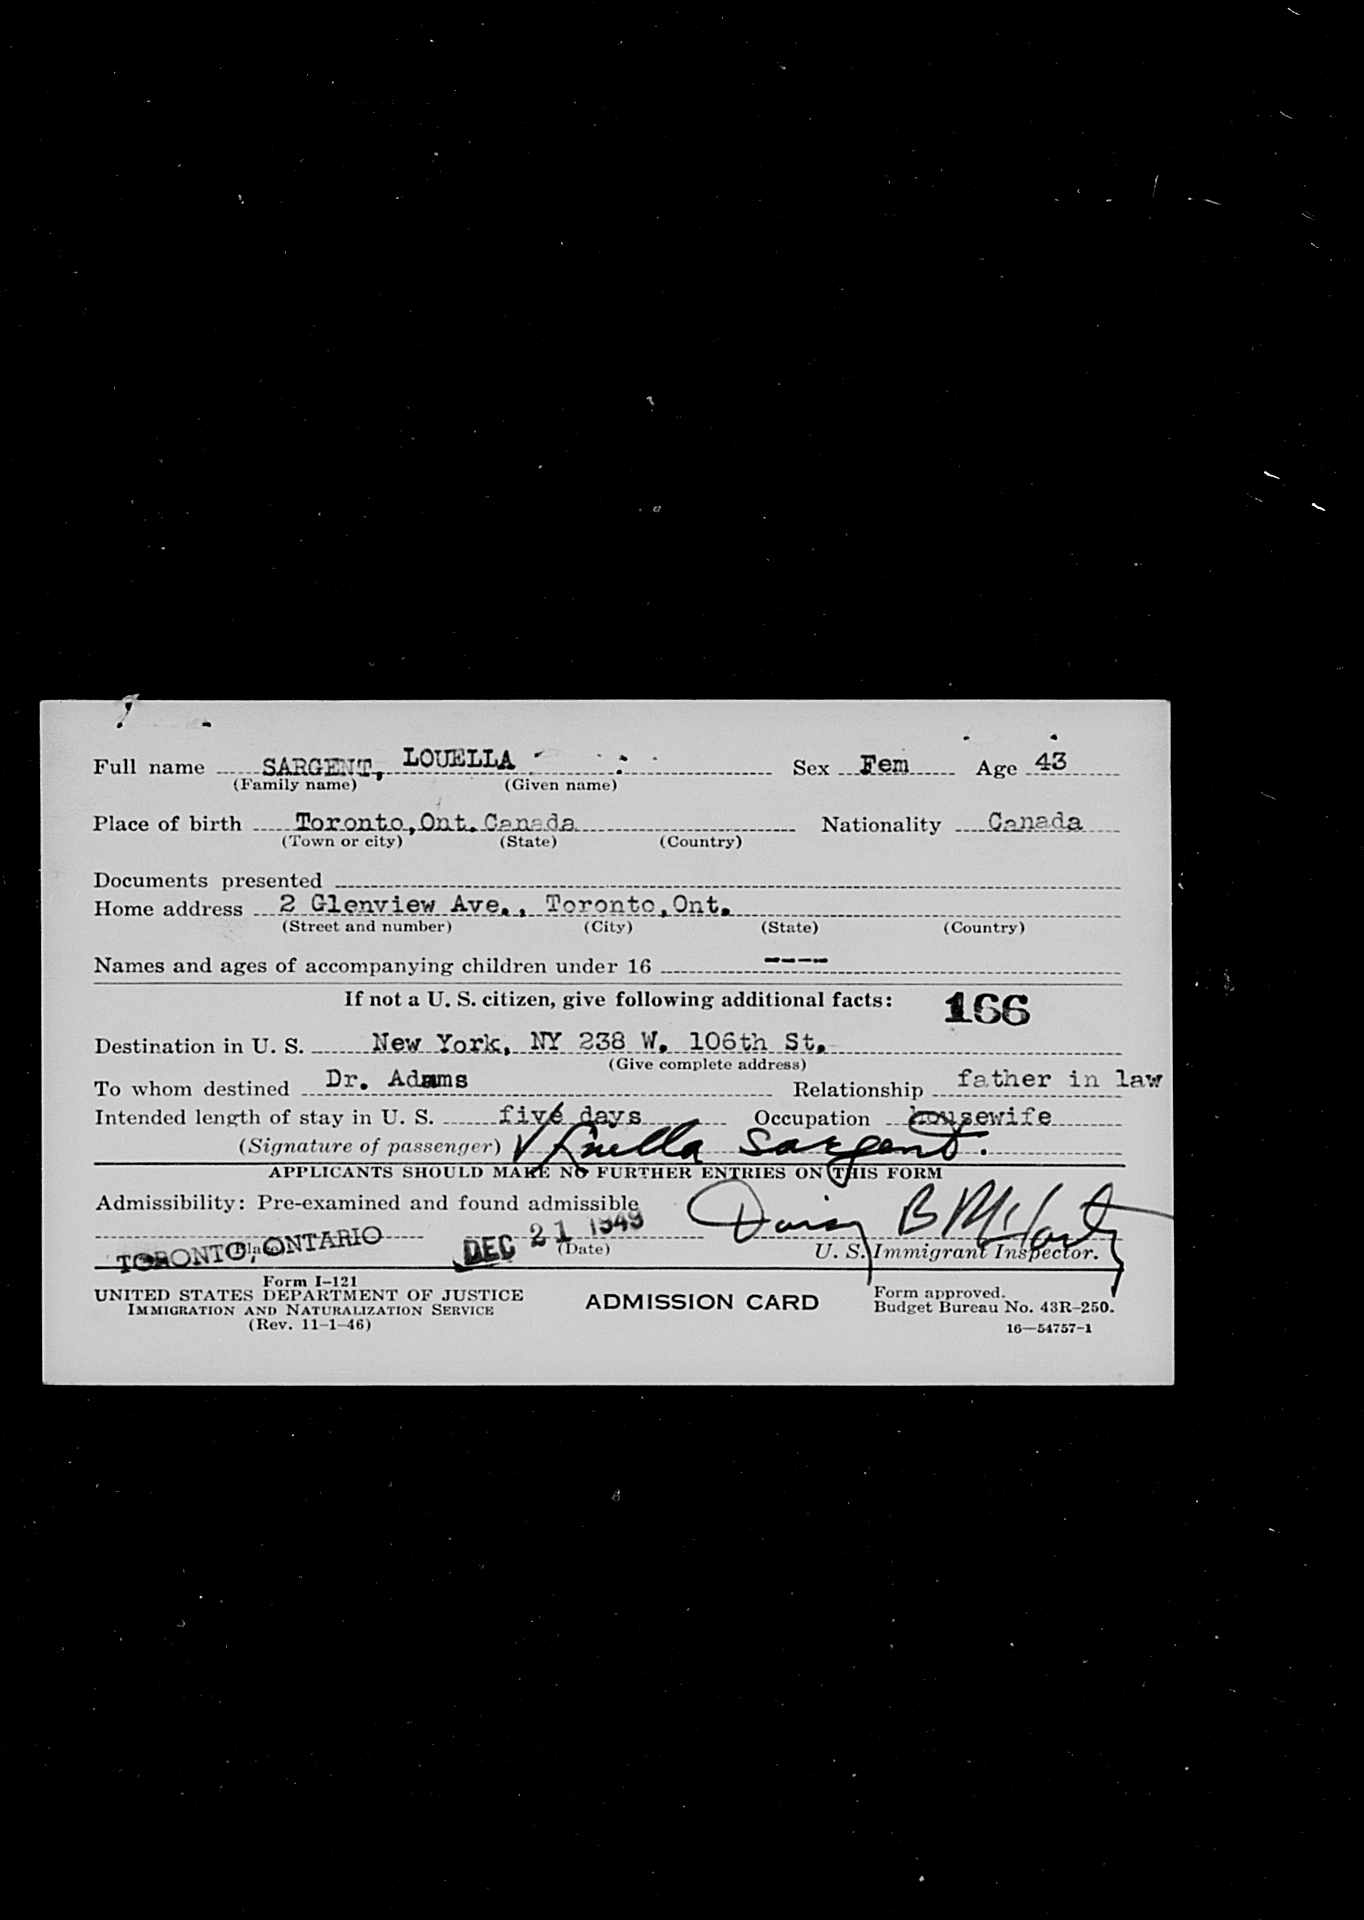 Full name SARGENT, LOUELLA Sex Fem Age 43
(Family name) (Given name)
Place of birth Toronto, Ont. Canada Nationality Canada
(Town or city) (State) (Country)
Documents presented
Home address 2 Glenview Ave., Toronto, Ont.
(Street and number) (City) (State) (Country)
Names and ages of accompanying children under 16 ----
If not a U. S. citizen, give following additional facts: 166
Destination in U. S. New York, NY 238 W. 106th St.
(Give complete address)
To whom destined Dr. Adams Relationship father in law
Intended length of stay in U. S. five days Occupation housewife
(Signature of passenger) Louella Sargent.
APPLICANTS SHOULD MAKE NO FURTHER ENTRIES ON THIS FORM
Admissibility: Pre-examined and found admissible
TORONTO, ONTARIO DEC 21 1949 Daisy B McCarty
(Place) (Date) U. S. Immigrant Inspector.
Form I-121
UNITED STATES DEPARTMENT OF JUSTICE
IMMIGRATION AND NATURALIZATION SERVICE
(Rev. 11-1-46)
ADMISSION CARD
Form approved.
Budget Bureau No. 43R-250.
16—54757-1